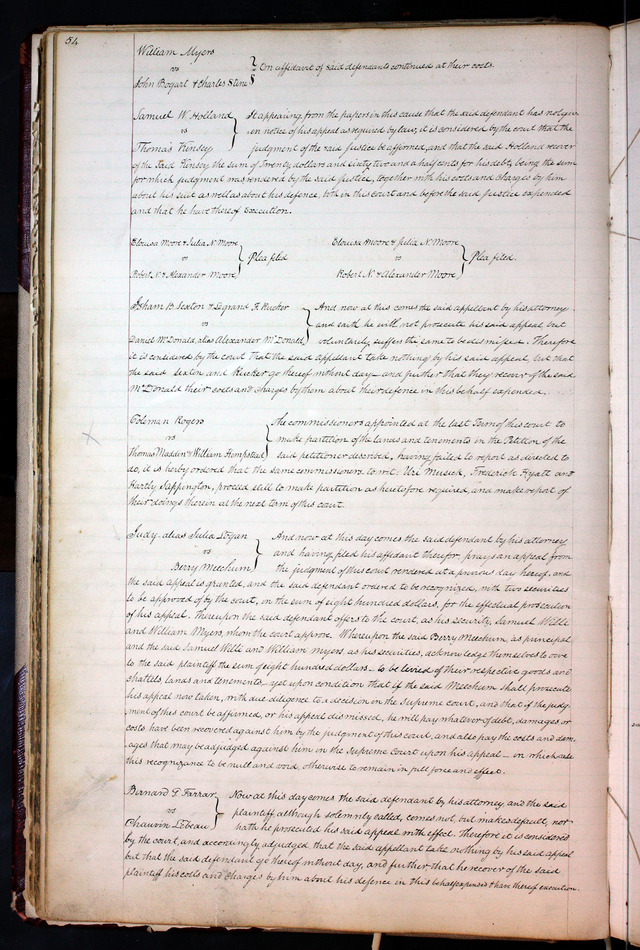 54
William Myers
vs } On affidavit of said defendants continued at their costs.
John Bogart & Charles Stine
Samuel W. Holland It appearing from the papers in this cause that the said defendant has not giv-
vs en notice of his appeal as required by law, it is considered by the court that the
Thomas Kinsey judgment of the said Justice be affirmed, and that the said Holland recover
of the said Kinsey the sum of Twenty dollars and sixty two and a half cents for his debt, being the sum
for which judgment was rendered by the said Justice, together with his costs and charges by him
about his suit as well as about his defence, both in this court and before the said Justice expended
and that he have thereof Execution.
Elouisa Moore & Julia N. Moore Elouisa Moore & Julia N. Moore
vs } Plea filed vs } Plea filed.
Robert N. & Alexander Moore Robert N. & Alexander Moore
Isham B. Sexton & Legrand F. Rucker And now at this comes the said appellant by his attorney
vs and saith he will not prosecute his said appeal, but
Daniel McDonald, alias Alexander McDonald voluntarily suffers the same to be dismissed. Therefore
it is considered by the court that the said appellant take nothing by his said appeal, but that
the said Sexton and Rucker go thereof without day and further that they recover of the said
McDonald their costs and charges by them about their defence in this behalf expended.
Coleman Rogers The commissioners appointed at the last Term of this court to
vs make partition of the lands and tenements in the Petition of the
Thomas Maddin & William Hempstead said petitioner described, having failed to report as directed to
do, it is herby ordered that the same commissioners to wit: Uri Musick, Frederick Hyatt and
Hartly Sappington, proceed still to make partition as heretofore required, and make report of
their doings therein at the next term of this court.
Judy. alias Julia Logan And now at this day comes the said defendant by his attorney
vs and having filed his affidavit therefor, prays an appeal from
Berry Meechum the judgment of this court rendered at a privous day hereof, and
the said appeal is granted, and the said defendant ordered to be recognized, with two securities
to be approved of by the court, in the sum of eight hundred dollars, for the effectual prosecution
of his appeal. Thereupon the said defendant offers to the court, as his security, Samuel Willi
and William Myers, whom the court approve. Whereupon the said Berry Meechum, as principal
and the said Samuel Willi and William Myers, as his securities, acknowledge themselves to owe
to the said plaintiff the sum of eight hundred dollars to be levied of their respective goods and
chattels, lands and tenements, yet upon condition that if the said Meechum shall prosecute
his appeal now taken, with due diligence to a decision in the Supreme court, and that if the judg-
ment of this court be affirmed, or his appeal dismissed, he will pay whatever of debt, damages or
costs have been recovered against him by the judgment of this court, and also pay the costs and dam-
ages that may be adjudged against him in the Supreme Court upon his appeal in which case
this recognizance to be null and void, otherwise to remain in full force and effect.
Bernard G. Farrar Now at this day comes the said defendant by his attorney and the said
vs plaintiff although solemnly called, comes not, but makes default, nor
Chauvin Lebeau hath he prosecuted his said appeal with effect. Therefore it is considered
by the court, and accordingly adjudged, that the said appellant take nothing by his said appeal
but that the said defendant go thereof without day, and further that he recover of the said
plaintiff his costs and charges by him about his defence in this behalf expended & have thereof execution.